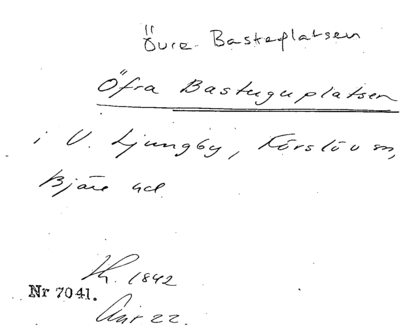 Övre Basteplatsen
Öfra Bastuguplatsen
i V. Ljungby, Förslöv sn,
Bjäre hd.
1842
Nr 7041.
22.